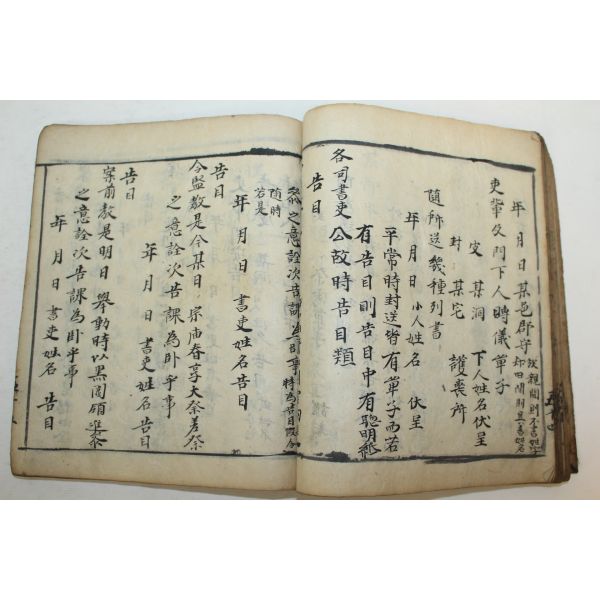 年 月 日 某邑郡守
吏輩及門下人時儀單子
皮 某洞 下人姓名 伏呈
封 某宅 護喪所
隨所送幾種列書
年 月 日 小人姓名 伏呈
平常時封送皆有單子而若
有告目則告目中有聰明紙
各司書吏公故時告目類
告目
之意詮次告課為卧乎事
隨時
若是
年 月 日 書吏姓名告目
告目
今監敎是今某日 宗廟春享大祭差祭
之意詮次告課為卧乎事
年 月 日 書吏姓名告目
告目
案前敎是明日 擧動時以黑團領進參
之意詮次告課為卧乎事
年 月 日 書吏姓名 告目